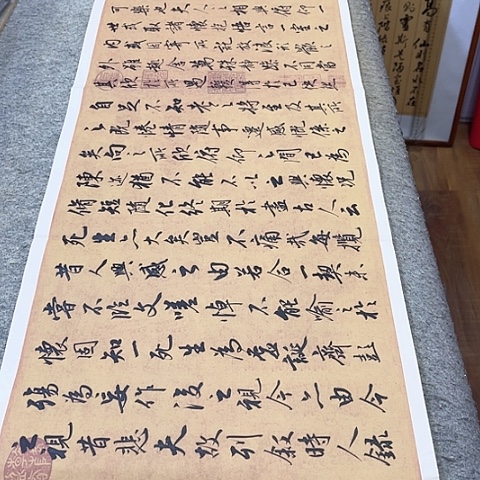 可樂也夫人之相與俯仰一
世或取諸懷抱悟言一室之
內或因寄所託放浪形骸之
外雖趣舍萬殊靜躁不同當
其欣於所遇蹔得於己怏然
自足不知老之將至及其所
之既惓情隨事遷感慨係之
矣向之所欣俯仰之間已為
陳迹猶不能不以之興懷況
脩短隨化終期於盡古人云
死生亦大矣豈不痛哉每攬
昔人興感之由若合一契未
嘗不臨文嗟悼不能喻之於
懷固知一死生為虛誕齊彭
殤為妄作後之視今亦由今
之視昔悲夫故列敘時人錄